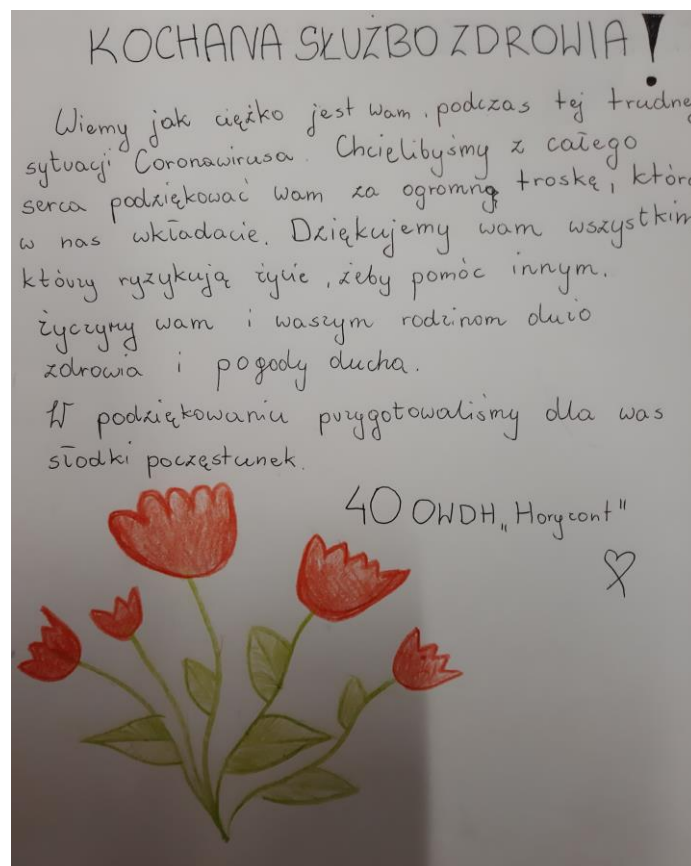 KOCHANA SŁUŻBO ZDROWIA!
Wiemy jak ciężko jest wam, podczas tej trudne
sytuacji Coronawirusa. Chcielibyśmy z całego
serca podziękować wam za ogromną troskę, któr
w nas wkładacie. Dziękujemy wam wszystkim
którzy ryzykują życie, żeby pomóc innym.
życzymy wam i waszym rodzinom dużo
zdrowia i pogody ducha.
W podziękowaniu przygotowaliśmy dla was
słodki poczęstunek.
40 OWDH „Horyzont"